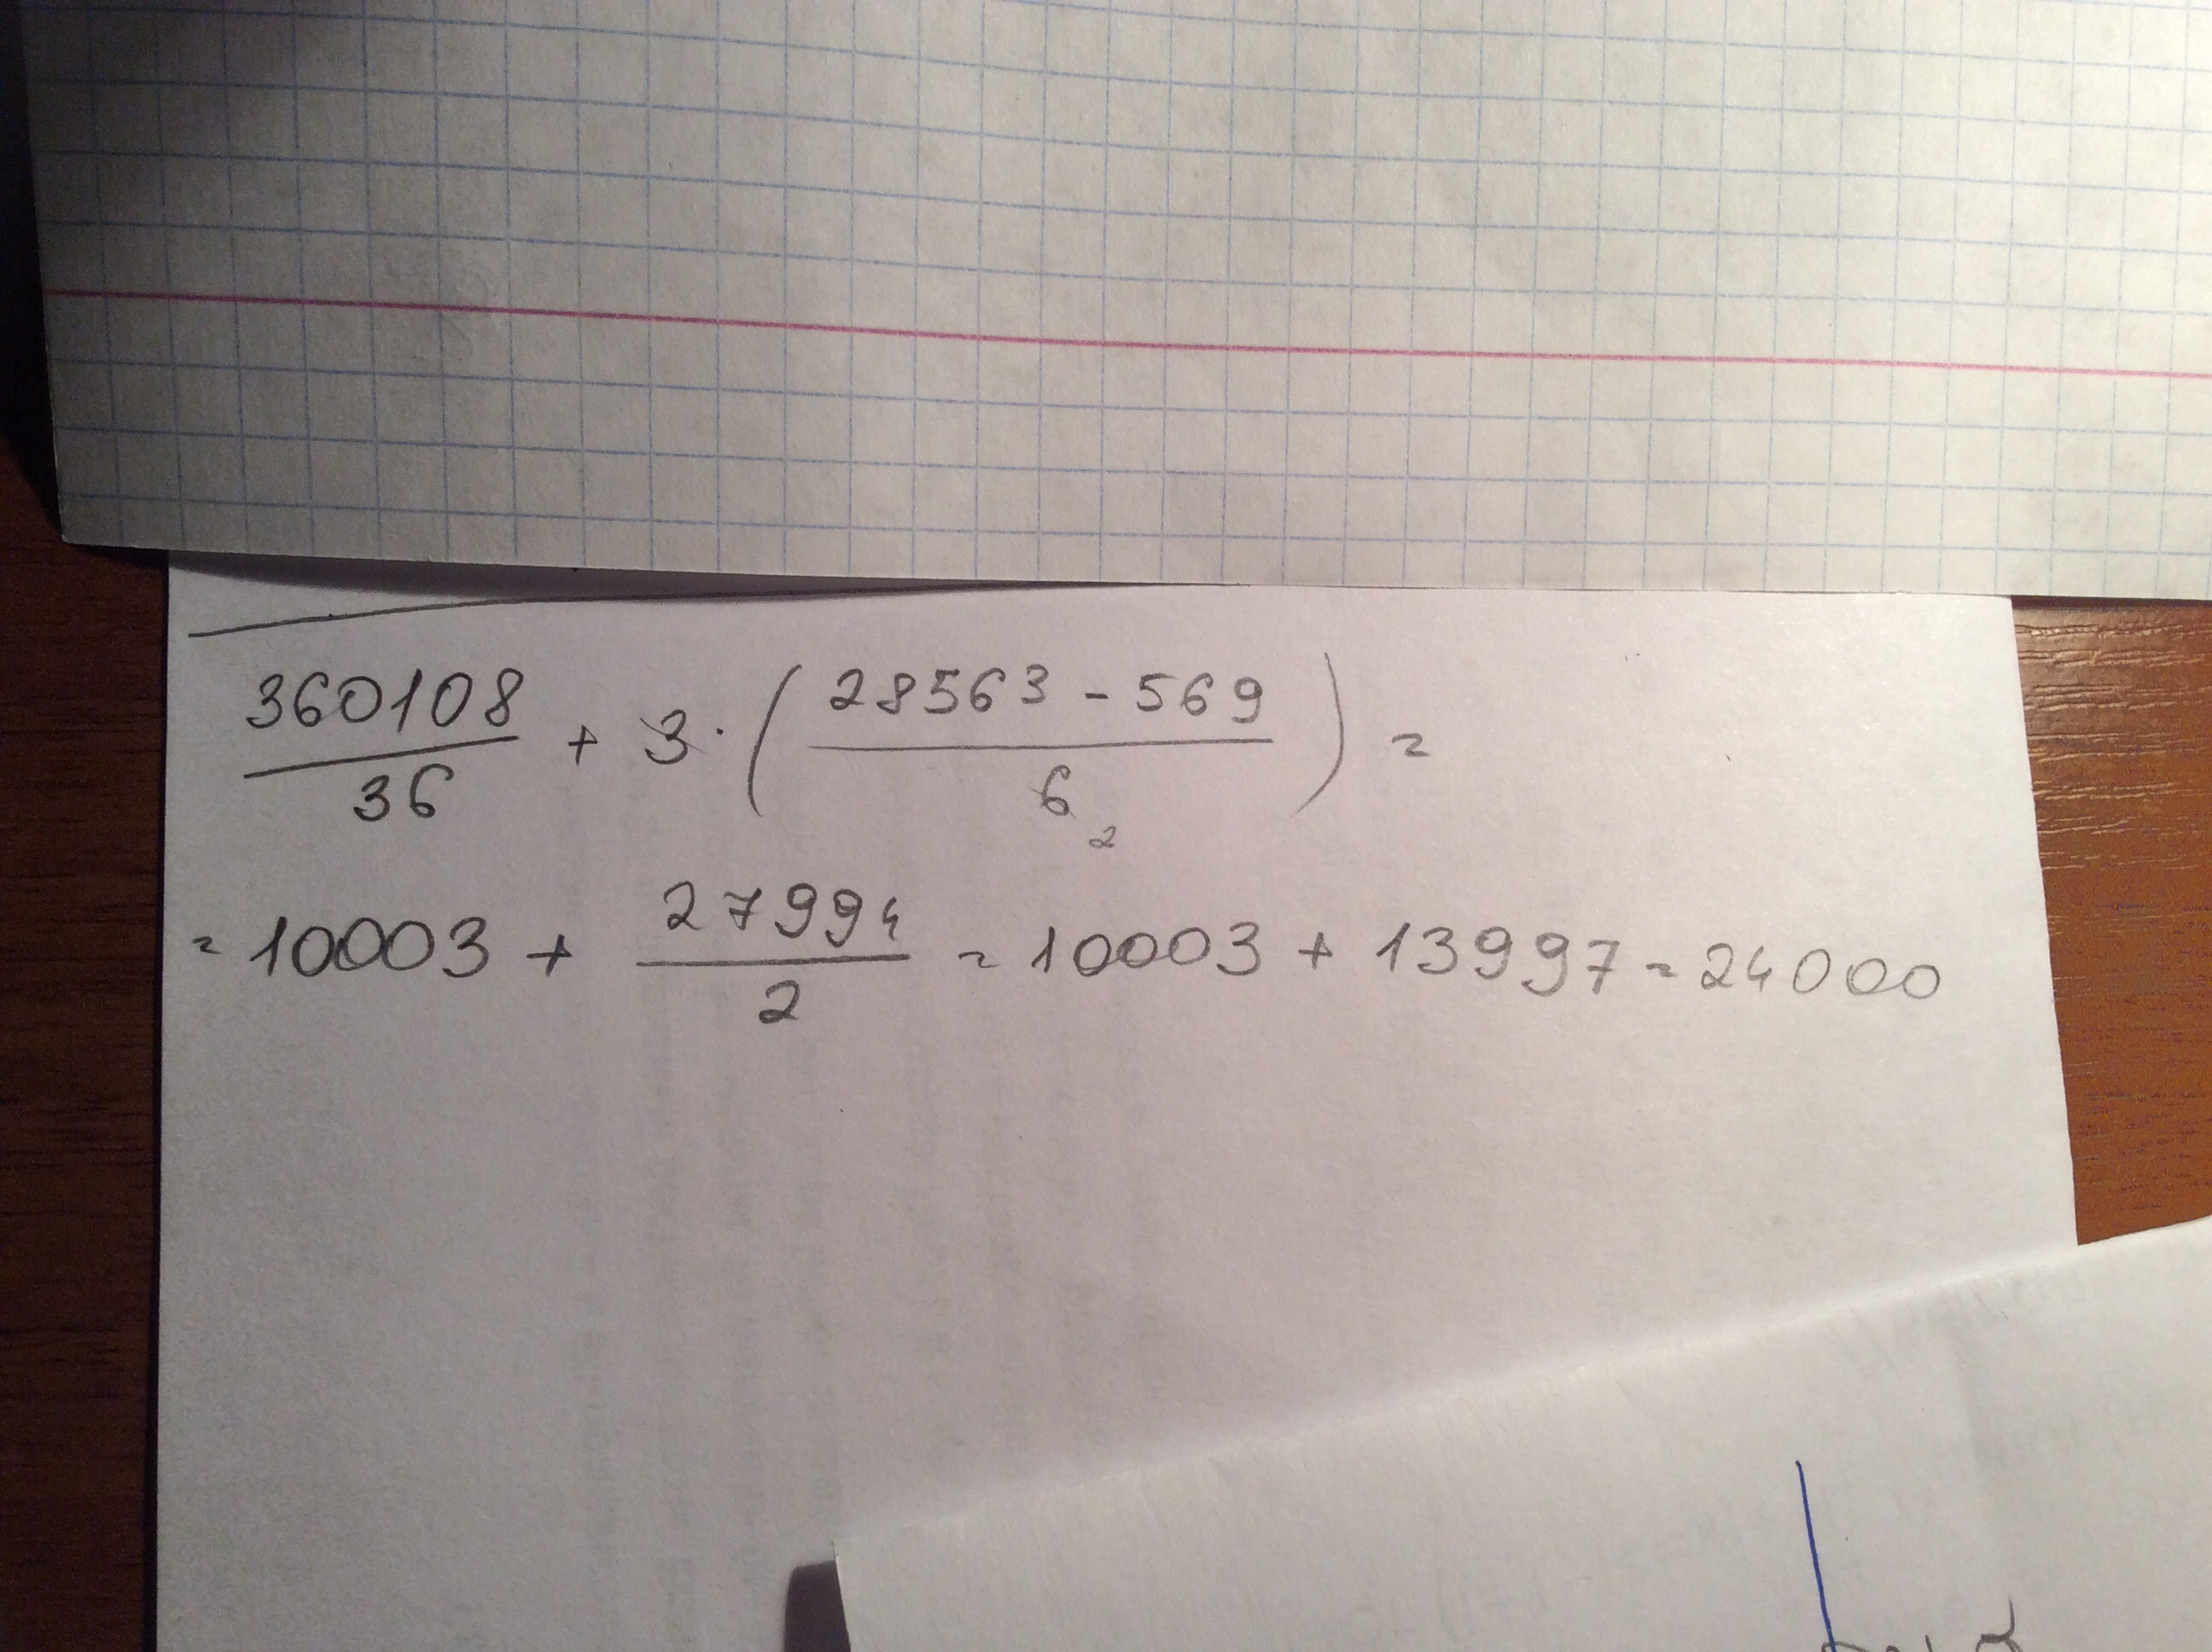 360108/36 + 3 · ( (28563 - 569)/6 2 ) =
= 10003 + 27994/2 = 10003 + 13997 = 24000